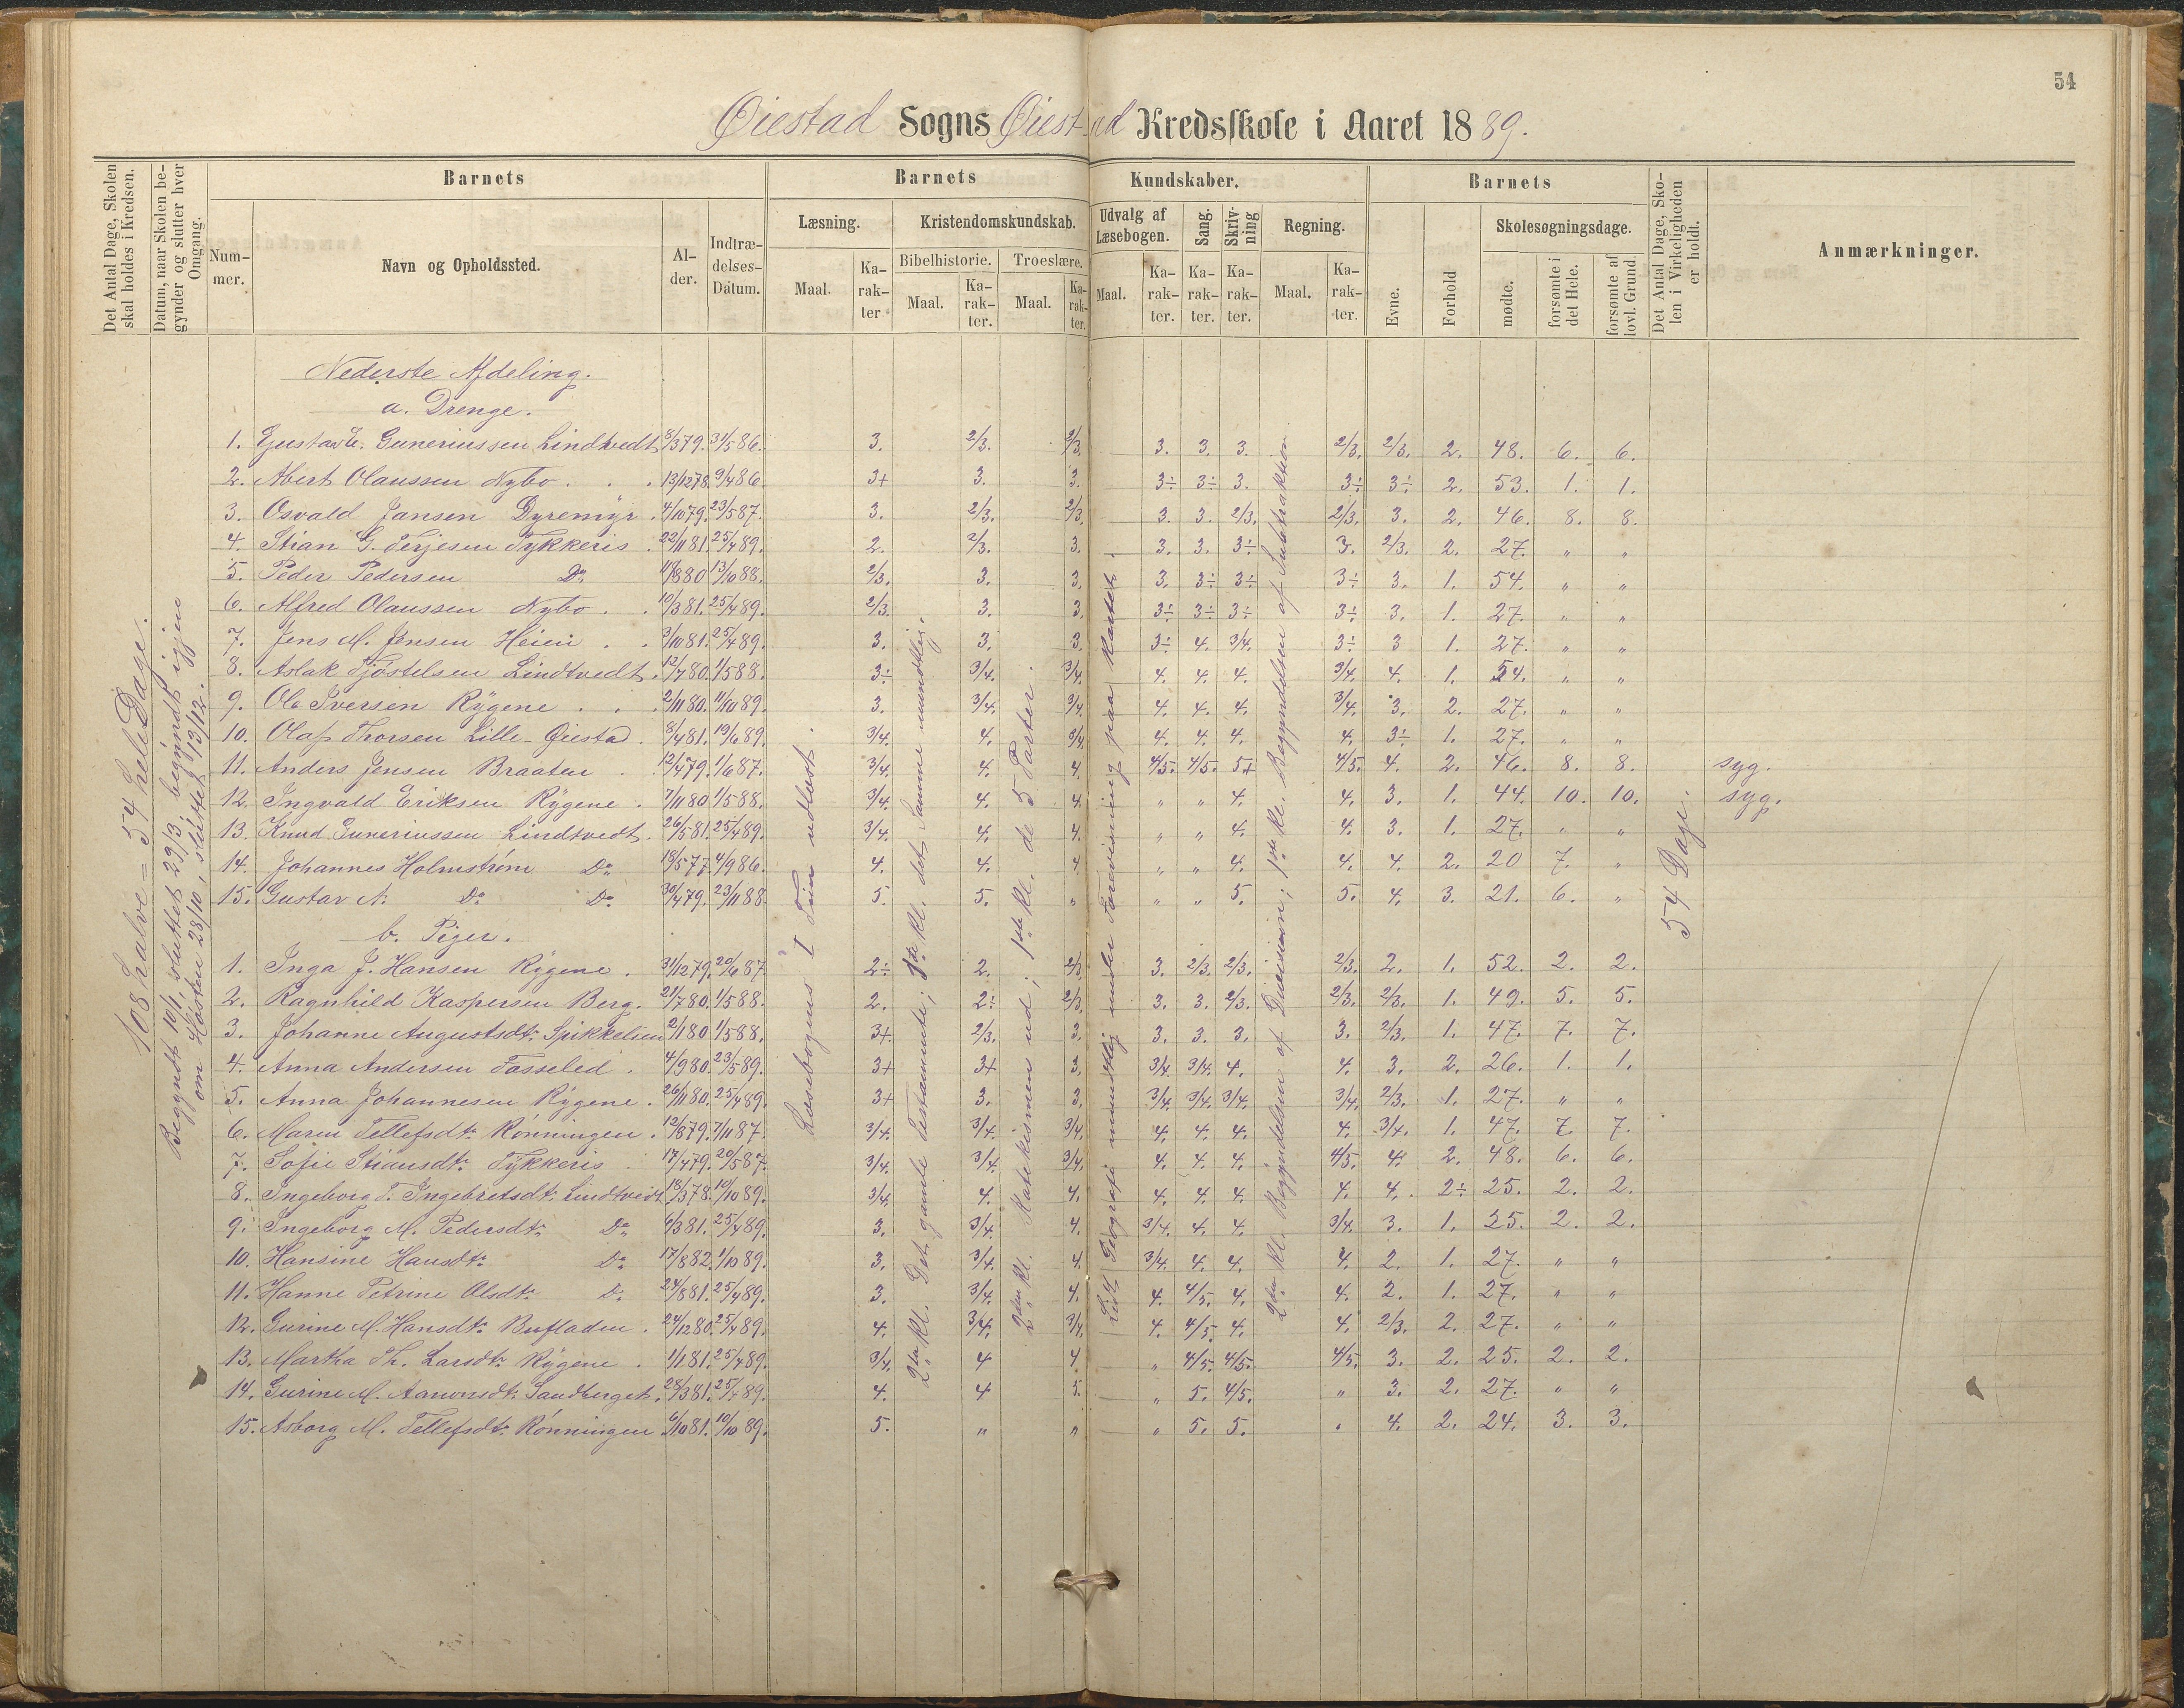 54
Øiestad Sogns Øiestad Kredsskole i Aaret 1889.
Det Antal Dage, Skolen skal holdes i Kredsen.
Datum, naar Skolen begynder og slutter hver Omgang.
Barnets
Nummer.
Navn og Opholdssted.
Alder.
Indtrædelses-Datum.
Barnets Kundskaber.
Læsning.
Maal.
Karakter
Kristendomskundskab.
Bibelhistorie.
Maal.
Karakter.
Troeslære.
Maal.
Karakter.
Udvalg af Læsebogen.
Maal.
Karakter.
Sang.
Karakter.
Skrivning
Karakter.
Regning.
Maal.
Karakter.
Barnets
Evne.
Forhold
Skolesøgningsdage.
mødte.
forsømte i det Hele.
forsømte af lovl. Grund.
Det Antal Dage, Skolen i Virkeligheden er holdt.
Anmærkninger.
108 halve = 54 hele Dage.
Begyndt 10/1, sluttet 23/3, begyndt igjen
om Høsten 28/10, sluttet 13/12.
Læsebogens I Trin udlæst.
2den Kl. Det gamle Testamente; 1ste Kl. det Samme mundtlig.
2den Kl. Katekismen ud; 1ste Kl. de 5 Parter.
Lidt Geografi mundtlig under Forevisning paa Kartet.
2den Kl. Begyndelsen af Division; 1ste Kl. Begyndelsen af Subtraktion
54 Dage.
Nederste Afdeling.
a. Drenge.
1. Gustav E. Guneriussen Lindtvedt 8/3 79. 31/5 86. 3. 2/3. 2/3. 3. 3. 3. 2/3. 2/3. 2. 48. 6. 6.
2. Abert Olaussen Nybo . . . 13/12 78. 9/4 86. 3+ 3. 3. 3÷ 3÷ 3. 3÷ 3÷ 2. 53. 1. 1.
3. Osvald Jansen Dyremyr . 4/10 79. 23/5 87. 3. 2/3. 2/3. 3. 3. 2/3. 2/3. 3. 2. 46. 8. 8.
4. Stian G. Terjesen Tykkeris . 22/11 81. 25/4 89. 2. 2/3. 3. 3. 3. 3÷ 3. 2/3. 2. 27. " "
5. Peder Pedersen Do 13/10 88. 2/3. 3. 3. 3. 3÷ 3÷ 3÷ 3. 1. 54. " "
6. Alfred Olaussen Nybo . . 10/3 81. 25/4 89. 2/3. 3. 3. 3÷ 3÷ 3÷ 3÷ 3. 1. 27. " "
7. Jens M. Jensen Heien . . 3/10 81. 25/4 89. 3. 3. 3. 3÷ 4. 3/4. 3÷ 3 1. 27. " "
8. Aslak Tjøstelsen Lindtvedt. 12/7 80. 1/5 88. 3÷ 3/4. 3/4. 4. 4. 4. 3/4. 4. 1. 54. " "
9. Ole Iversen Rygene . . . 2/11 80. 11/10 89. 3. 3/4. 3/4. 4. 4. 4. 3/4. 3. 2. 27. " "
10. Olaf Thorsen Lille-Øiestad . 8/4 81. 19/6 89. 3/4. 4. 3/4. 4. 4. 4. 4. 3÷ 1. 27. " "
11. Anders Jensen Braaten . 12/4 79. 1/6 87. 3/4. 4. 4. 4/5. 4/5. 5+ 4/5. 4. 2. 46. 8. 8. syg.
12. Ingvald Eriksen Rygene . 7/11 80 1/5 88. 3/4. 4. 4. " " 4. 4. 3. 1. 44. 10. 10. syg.
13. Knud Guneriussen Lindtvedt. 26/5 81. 25/4 89. 3/4. 4. 4. " " 4. 4. 3. 1. 27. " "
14. Johannes Holmstrøm Do 18/5 77. 4/9 86. 4. 4. 4. " " 4. 4. 4. 2. 20 7. "
15. Gustav A. Do Do 30/4 79. 23/11 88. 5. 5. " " " 5. 5. 4. 3. 21. 6. "
b. Piger.
1. Inga J. Hansen Rygene . 31/12 79. 20/6 87 2÷ 2. 2/3. 3. 2/3. 2/3. 2/3. 2. 1. 52. 2. 2.
2. Ragnhild Kaspersen Berg. 21/7 80. 1/5 88. 2. 2÷ 2/3. 3. 3. 2/3. 2/3. 2/3. 1. 49. 5. 5.
3. Johanne Augustsdtr. Spikkelien 2/1 80 1/5 88. 3+ 2/3. 3. 3. 3. 3. 3. 2/3. 1. 47. 7. 7.
4. Anna Andersen Fasseled . 4/9 80. 23/5 89. 3+ 3+ 3. 3/4. 3/4. 4. 4. 3. 2. 26. 1. 1.
5. Anna Johannesen Rygene . 26/11 80. 25/4 89. 3+ 3. 3. 3/4. 3/4. 3/4. 3/4. 2/3. 1. 27. " "
6. Maren Tellefsdtr. Rønningen . 12/8 79. 7/11 87. 3/4. 3/4. 3/4. 4. 4. 4. 4. 3/4. 1. 47. 7. 7.
7. Sofie Stiansdtr. Tykkeris . 17/4 79. 20/5 87. 3/4. 3/4. 3/4. 4. 4. 4. 4/5. 4. 2. 48. 6. 6.
8. Ingeborg T. Ingebretsdtr. Lindtvedt 18/3 78. 10/10 89. 3/4. 4. 4. 4. 4. 4. 4. 4. 2÷ 25. 2. 2.
9. Ingeborg M. Pedersdtr. Do 6/3 81. 25/4 89. 3. 3/4. 4. 3/4. 4. 4. 3/4. 3. 1. 25. 2. 2.
10. Hansine Hansdtr. Do 17/8 82. 1/10 89. 3. 3/4. 4. 3/4. 4. 4. 4. 2. 1. 27. " "
11. Hanne Petrine Olsdtr. Do 24/8 81. 25/4 89. 3. 3/4. 4. 4. 4/5. 4. 4. 2. 1. 27. " "
12. Gurine M. Hansdtr. Bufladen . 24/12 80. 25/4 89. 4. 3/4. 3/4. 4. 4/5. 4. 4. 2/3. 2. 27. " "
13. Martha Th. Larsdtr. Rygene . 1/1 81. 25/4 89. 3/4. 4 4. " 4/5. 4/5. 4/5. 3. 2. 25. 2. 2.
14. Gurine M. Aanonsdtr. Sandberget. 28/3 81. 25/4 89. 4. 4 5. " 5. 4/5. " 3. 2. 27. " "
15. Asborg M. Tellefsdtr. Rønningen . 6/10 81. 10/10 89. 5. " " " 5. 5. " 4. 2. 24. 3. 3.